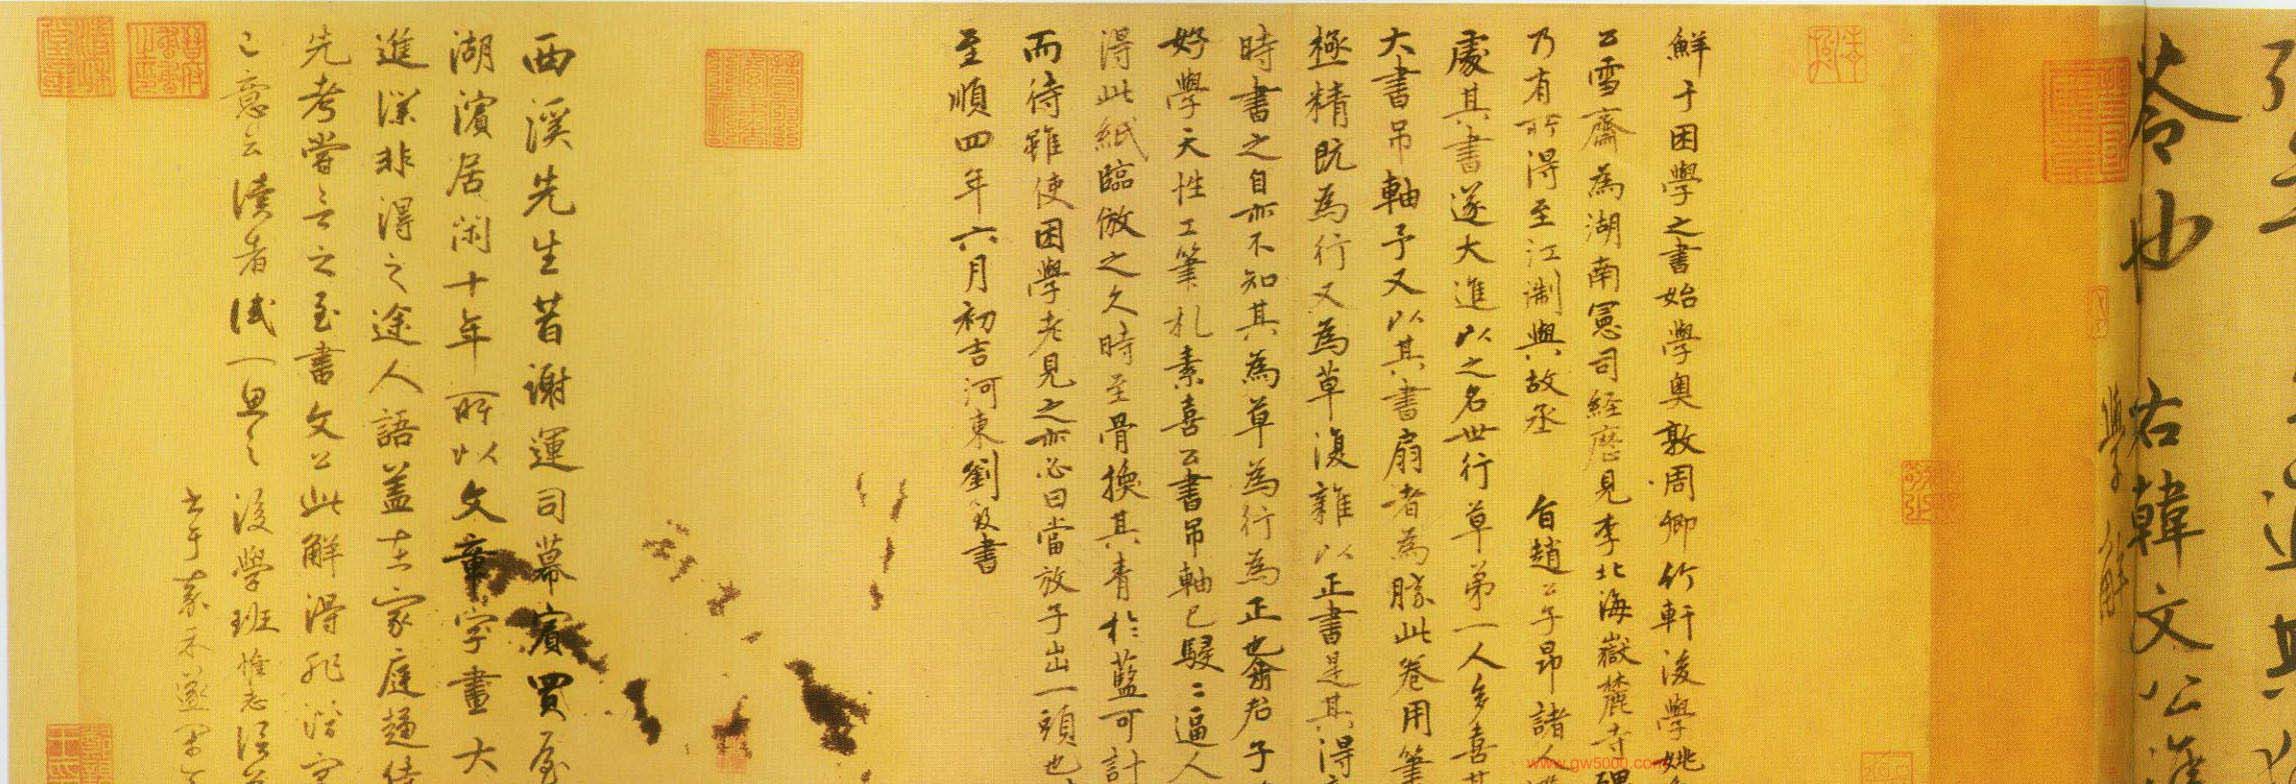 苓也 右韓文公進
學解
鮮于困學之書始學奧敦周卿竹軒後學姚
公雪齋為湖南憲司經歷見李北海嶽麓寺碑
乃有所得至江淛與故丞 旨趙公子昂諸人
處其書遂大進以之名世行草第一人多喜其
大書吊軸予又以其書扇者為勝此卷用筆
極精既為行又為草復雜以正書是其得
時書之自亦不知其為草為行為正也俞君子
好學天性工筆札素喜公書吊軸已駸ミ逼人
得此紙臨倣之久時至骨換其青於藍可計
而待雖使困學老見之亦必曰當放子出一頭也
至順四年六月初吉河東劉致書
西溪先生昔謝運司幕賓買屋
湖濱居閑十年所以文章字畫大
進深非得之途人語蓋在家庭趨
先考嘗言之云至書文公此解得
之意云讀者試一思之 後學班惟志
www.gw5000.com